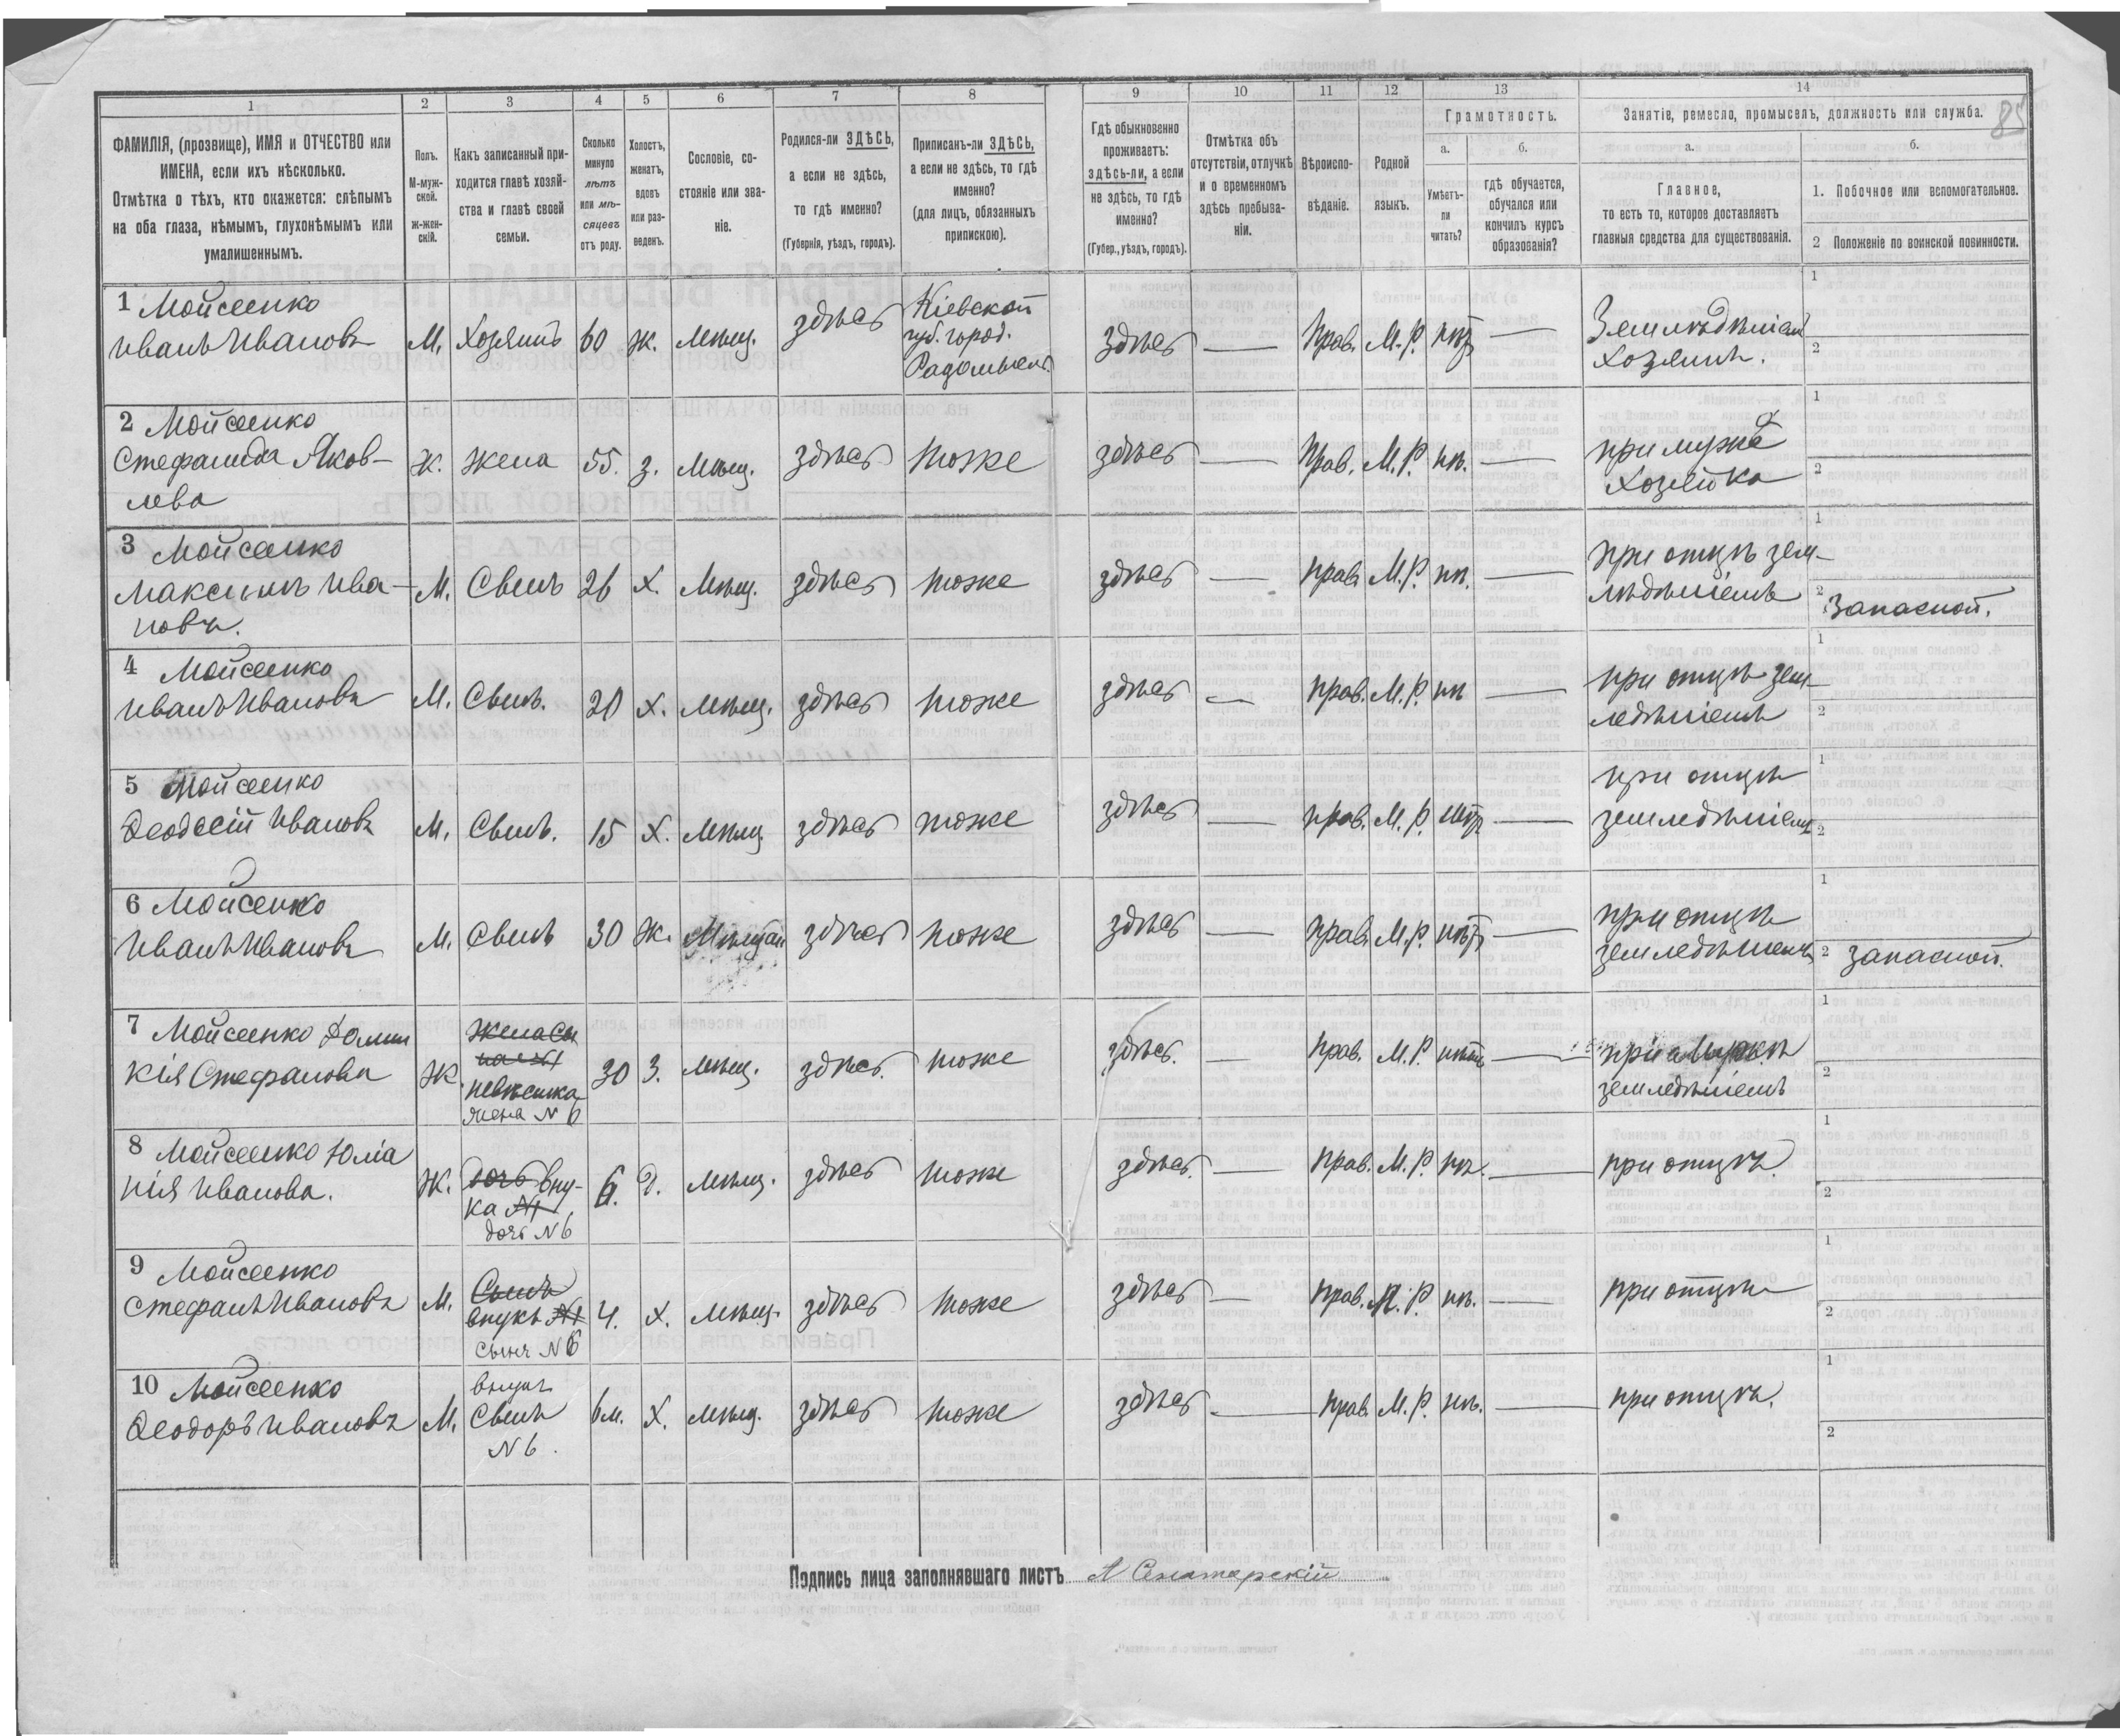 1 2 3 4 5 6 7 8 9 10 11 12 13 14
85
ФАМИЛІЯ, (прозвище), ИМЯ и ОТЧЕСТВО или
ИМЕНА, если ихъ нѣсколько.
Отмѣтка о тѣхъ, кто окажется: слѣпымъ
на оба глаза, нѣмымъ, глухонѣмымъ или
умалишеннымъ.
Полъ.
М-муж-
ской.
ж-жен-
скій.
Какъ записанный при-
ходится главѣ хозяй-
ства и главѣ своей
семьи.
Сколько
минуло
лѣтъ
или мѣ-
сяцевъ
отъ роду.
Холостъ,
женатъ,
вдовъ
или раз-
веденъ.
Сословіе, со-
стояніе или зва-
ніе.
Родился-ли ЗДѢСЬ,
а если не здѣсь,
то гдѣ именно?
(Губернія, уѣздъ, городъ).
Приписанъ-ли ЗДѢСЬ,
а если не здѣсь, то гдѣ
именно?
(для лицъ, обязанныхъ
припискою).
Гдѣ обыкновенно
проживаетъ:
здѣсь-ли, а если
не здѣсь, то гдѣ
именно?
(Губер., уѣздъ, городъ).
Отмѣтка объ
отсутствіи, отлучкѣ
и о временномъ
здѣсь пребыва-
ніи.
Вѣроиспо-
вѣданіе.
Родной
языкъ.
Грамотность.
а.
Умѣетъ-
ли
читать?
б.
гдѣ обучается,
обучался или
кончилъ курсъ
образованія?
Занятіе, ремесло, промыселъ, должность или служба.
а.
Главное,
то есть то, которое доставляетъ
главныя средства для существованія.
б.
1. Побочное или вспомогательное.
2 Положеніе по воинской повинности.
1 Мойсеенко
Иванъ Ивановъ М. Хозяинъ 60 ж. мѣщ. здѣсь
Кіевской
губ. город.
Радомысль
здѣсь — Прав. М.Р. нѣтъ —
Земледѣліем
Хозяинъ.
1
2
2 Мойсеенко
Стефанида Яков-
лева
Ж. жена 55. з. мѣщ. здѣсь тоже здѣсь — Прав. М.Р. нѣ. —
при мужѣ
хозяйка
1
2
3 Мойсеенко
Максимъ Ива-
новъ.
М. Сынъ 26 х. мѣщ. здѣсь тоже здѣсь — прав. М.Р. нѣ. —
при отцѣ зем-
лѣдѣліемъ
1
2 Запасной.
4 Мойсеенко
Иванъ Ивановъ М. Сынъ. 20 х. мѣщ. здѣсь тоже здѣсь — прав. М.Р. нѣ —
при отцѣ зем-
ледѣліемъ
1
2
5 Мойсеенко
Ѳеодосій Ивановъ М. Сынъ. 15 х. мѣщ. здѣсь тоже здѣсь — прав. М.Р. нѣтъ —
при отцѣ
земледѣліемъ
1
2
6 Мойсеенко
Иванъ Ивановъ М. Сынъ 30 Ж. Мѣщан здѣсь тоже здѣсь — Прав. М.Р. нѣтъ —
при отцѣ
земледѣліемъ
1
2 запасной.
7 Мойсеенко Домни
кія Стефанова Ж.
жена сы
на №1
невѣстка
жена № 6
30 з. мѣщ. здѣсь. тоже здѣсь. — Прав. М.Р. нѣтъ —
при мужѣ
земледѣліемъ
1
2
8 Мойсеенко Юліа
нія Иванова. Ж.
дочь вну-
ка №1
дочь № 6
6. д. мѣщ. здѣсь тоже здѣсь. — прав. М.Р. нѣ. —
при отцѣ.
1
2
9 Мойсеенко
Стефанъ Ивановъ М.
Сынъ
внукъ №1
сынъ № 6
4. х. мѣщ. здѣсь тоже здѣсь — прав. М.Р. нѣ. —
при отцѣ
1
2
10 Мойсеенко
Ѳеодоръ Ивановъ М.
внукъ
Сынъ
№ 6.
6 м. х. мѣщ. здѣсь тоже здѣсь — прав. М.Р. нѣ. —
при отцѣ.
1
2
Подпись лица заполнявшаго листъ